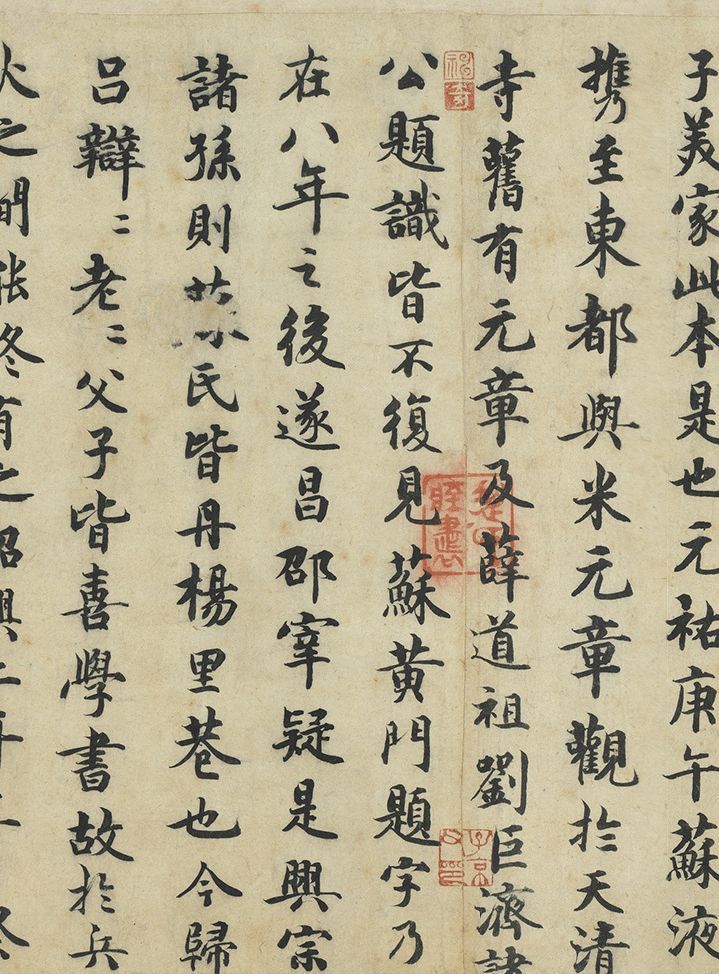 子美家此本是也元祐庚午蘇液
攜至東都與米元章觀於天清
寺舊有元章及薛道祖劉巨濟諸
公題識皆不復見蘇黃門題字乃
在八年之後遂昌邵宰疑是興宗
諸孫則蘇氏皆丹楊里巷也今歸
呂辯〻老〻父子皆喜學書故於兵
火之間能終有之紹興二年三